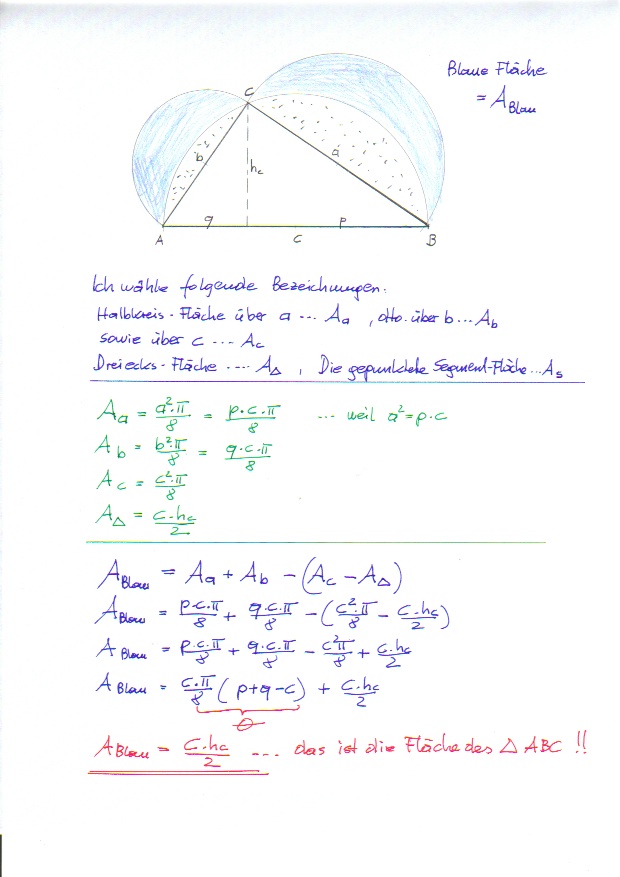 Blaue Fläche
= A_Blau
C
b
a
h_c
q
p
A
C
B
Ich wähle folgende Bezeichnungen:
Halbkreis-Fläche über a ... A_a , dtto. über b ... A_b
sowie über c ... A_c
Dreiecks-Fläche .... A_Δ , Die gepunktete Segment-Fläche ... A_s
A_a = a²·π/8 = p·c·π/8 ... weil a²=p·c
A_b = b²·π/8 = q·c·π/8
A_c = c²·π/8
A_Δ = c·h_c/2
A_Blau = A_a + A_b - (A_c - A_Δ)
A_Blau = p·c·π/8 + q·c·π/8 - (c²·π/8 - c·h_c/2)
A_Blau = p·c·π/8 + q·c·π/8 - c²π/8 + c·h_c/2
A_Blau = c·π/8 (p+q-c) + c·h_c/2
0
A_Blau = c·h_c/2 ... das ist die Fläche des Δ ABC !!